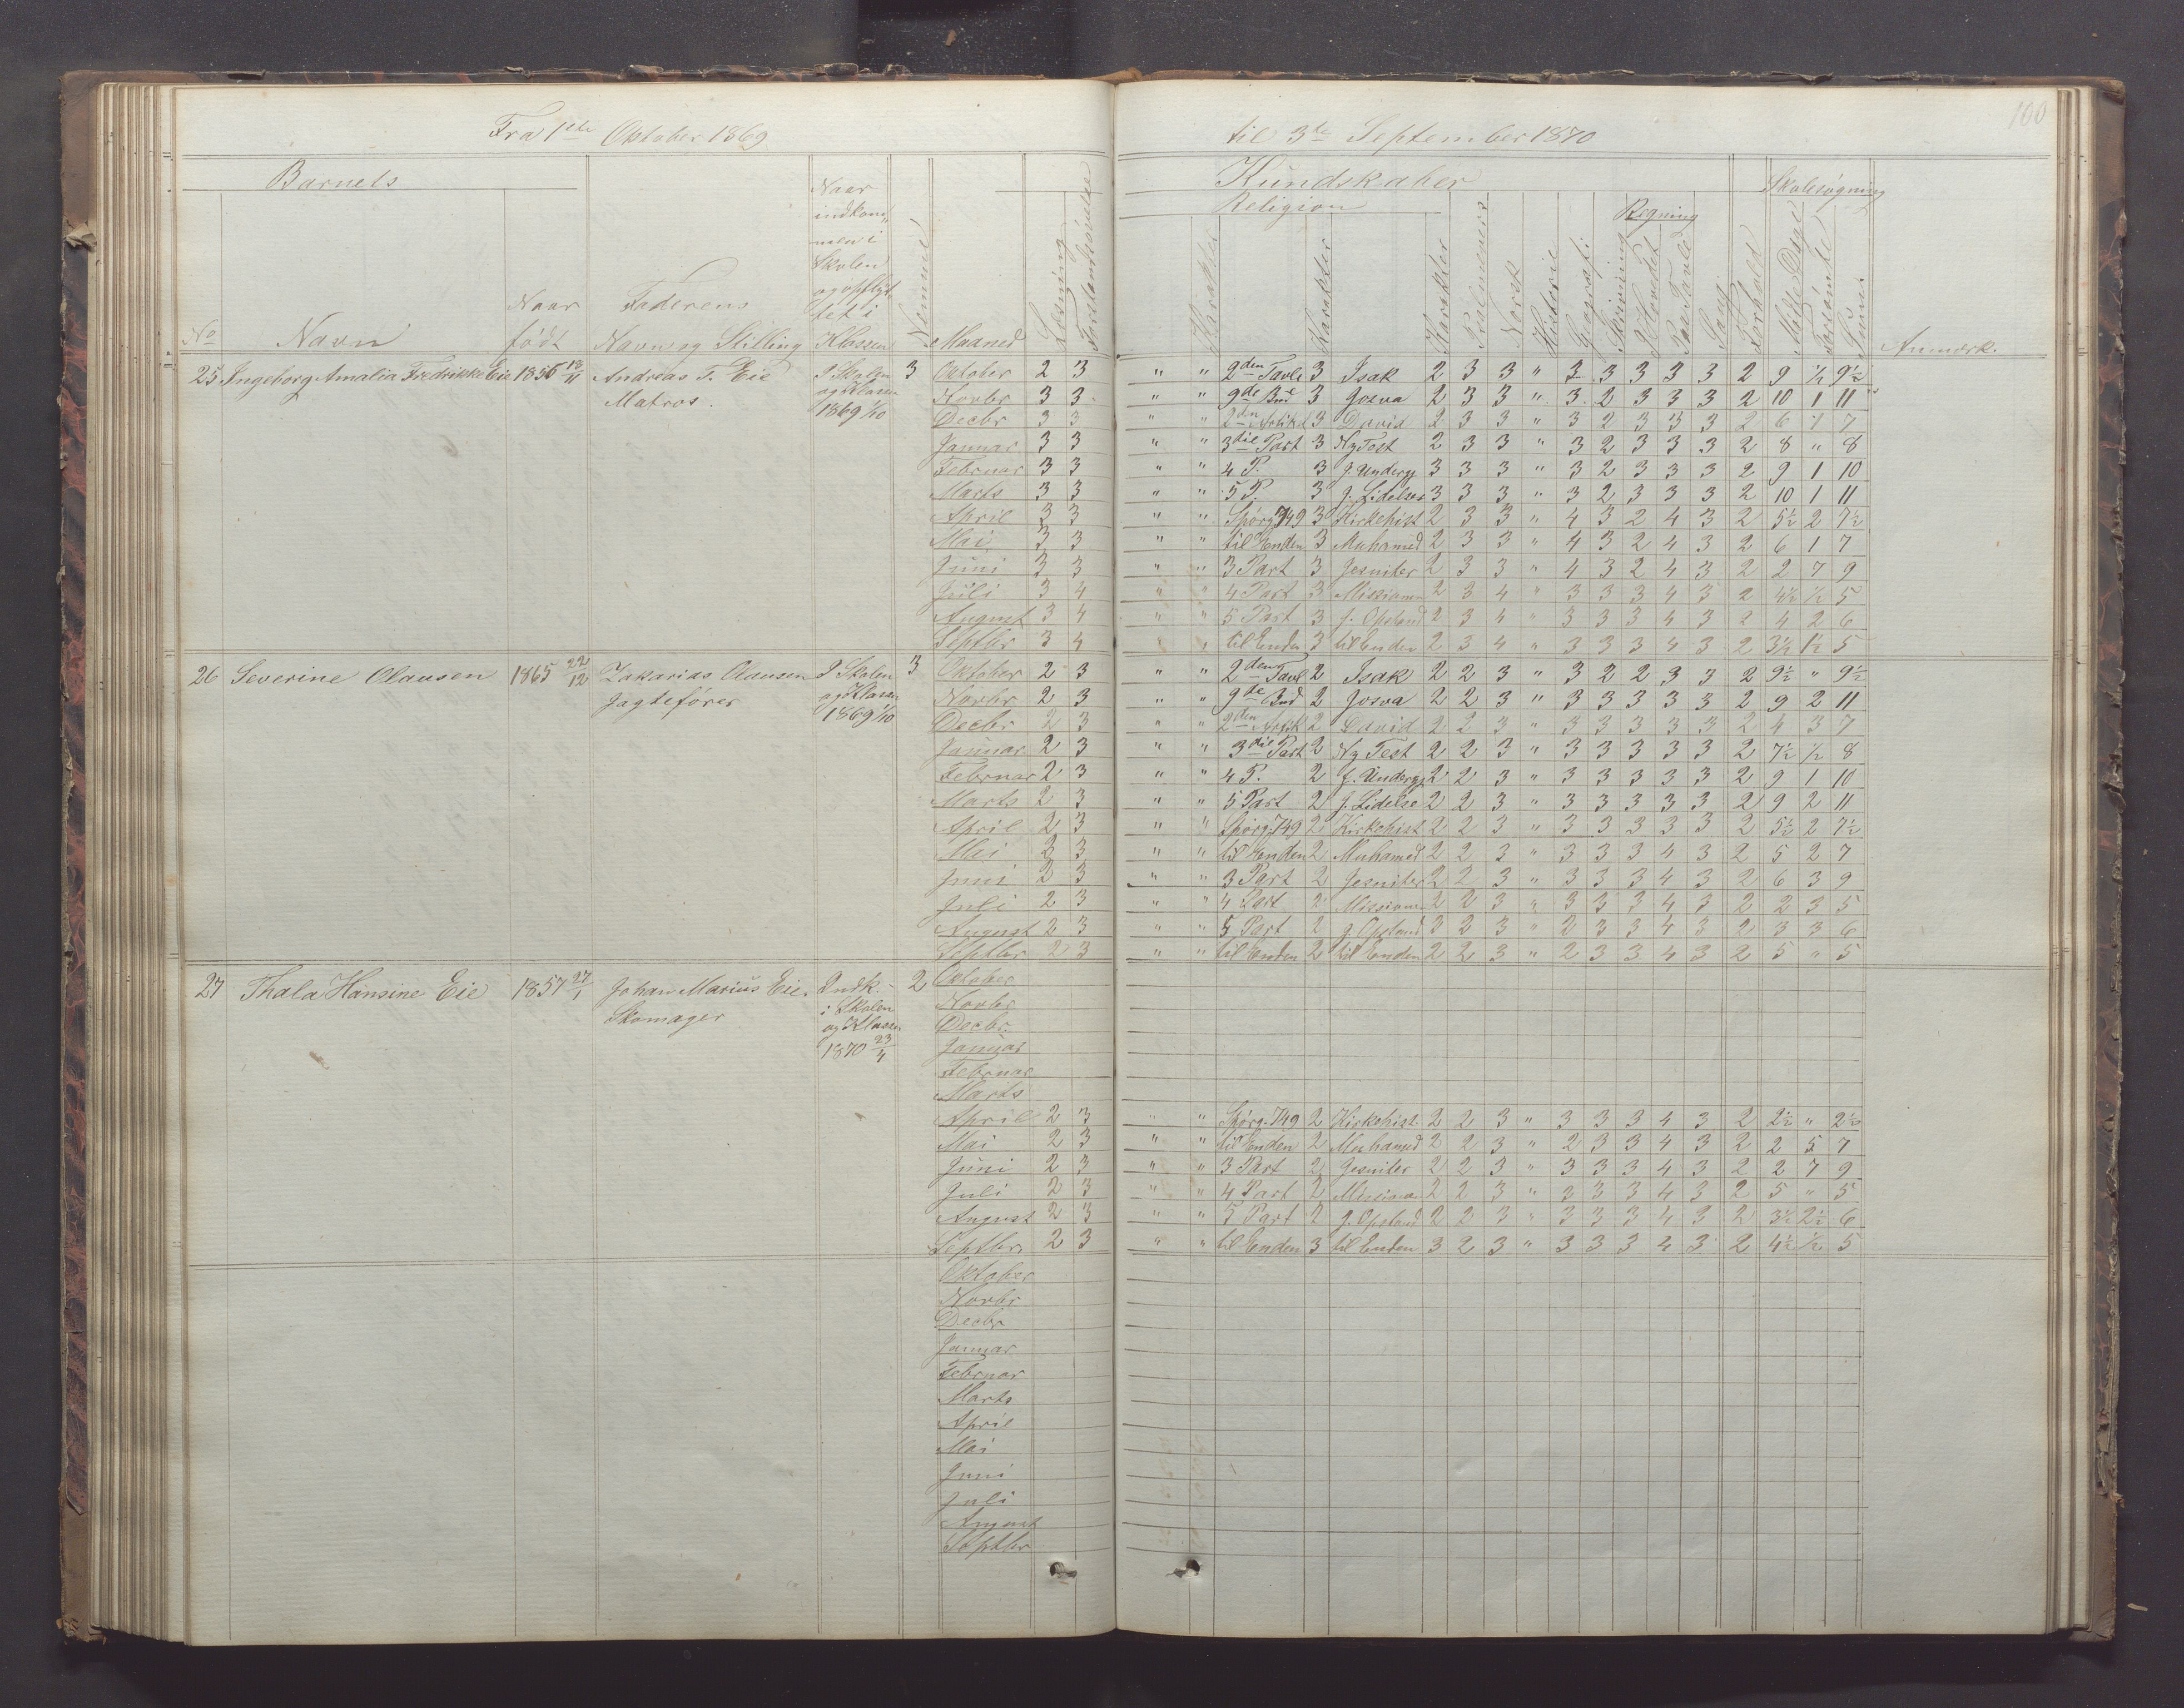 Fra 1ste Oktober 1869 til 3te September 1870
100
Barnets Kundskaber Skolesøgning
Religion Regning
No Navn Naar født Faderens Navn og Stilling Naar indkommen i Skolen og opflyttet i Klassen Nummer Maaned Læsning Forstandsøvelse Karakter Karakter Karakter Norsk Historie Geografi Skrivning I Hovedet Paa Tavle Sang Forhold Mødte Dage Forsømte Summa Anmærk.
25 Ingeborg Amalia Fredrikke Eie 1856 18/11 Andreas T. Eie I Skolen 3 Oktober 2 3 " " 2den Tavle 3 Isak 2 3 3 " 3 3 3 3 3 2 9 1/2 9 1/2
Matros. og Klassen Novbr 3 3 " " 9de Bud 3 Josva 2 3 3 " 3 2 3 3 3 2 10 1 11
1869 1/10 Decbr 3 3 " " 2den Artikel 3 David 2 3 3 " 3 2 3 3 3 2 6 1 7
Januar 3 3 " " 3die Part 3 Ny Test 2 3 3 " 3 2 3 3 3 2 8 " 8
Februar 3 3 " " 4 P. 3 J. Undergj 3 3 3 " 3 2 3 3 3 2 9 1 10
Marts 3 3 " " 5 P. 3 J. Lidelse 3 3 3 " 3 2 3 3 3 2 10 1 11
April 3 3 " " Spørg. 749 3 Kirkehist 2 3 3 " 4 3 2 4 3 2 5 1/2 2 7 1/2
Mai 3 3 " " til Enden 3 Muhamed 2 3 3 " 4 3 2 4 3 2 6 1 7
Juni 3 3 " " 3 Part 3 Jesuiter 2 3 3 " 4 3 2 4 3 2 2 7 9
Juli 3 4 " " 4 Part 3 Missionen 2 3 4 " 3 3 3 4 3 2 4 1/2 1/2 5
August 3 4 " " 5 Part 3 J. Opstand 2 3 4 " 3 3 3 4 3 2 4 2 6
Septbr 3 4 " " til Enden 3 til Enden 2 3 4 " 3 3 3 4 3 2 3 1/2 1 1/2 5
26 Severine Olausen 1865 22/12 Zakarias Olausen I Skolen 3 Oktober 2 3 " " 2den Tavl 2 Isak 2 2 3 " 3 2 2 3 3 2 9 1/2 " 9 1/2
Jagtefører og Klassen Novbr 2 3 " " 9de Bud 2 Josva 2 2 3 " 3 3 3 3 3 2 9 2 11
1869 1/10 Decbr 2 3 " " 2den Artik 2 David 2 2 3 " 3 3 3 3 3 2 4 3 7
Januar 2 3 " " 3die Part 2 Ny Test 2 2 3 " 3 3 3 3 3 2 7 1/2 1/2 8
Februar 2 3 " " 4 P. 2 J. Undergj 2 2 3 " 3 3 3 3 3 2 9 1 10
Marts 2 3 " " 5 Part 2 J. Lidelse 2 2 3 " 3 3 3 3 3 2 9 2 11
April 2 3 " " Spørg. 749 2 Kirkehist 2 2 3 " 3 3 3 3 3 2 5 1/2 2 7 1/2
Mai 2 3 " " til Enden 2 Muhamed 2 2 3 " 3 3 3 4 3 2 5 2 7
Juni 2 3 " " 3 Part 2 Jesuiter 2 2 3 " 3 3 3 4 3 2 6 3 9
Juli 2 3 " " 4 Part 2 Missionen 2 2 3 " 3 3 3 4 3 2 2 3 5
August 2 3 " " 5 Part 2 J. Opstand 3 2 3 " 2 3 3 4 3 2 3 3 6
Septbr 2 3 " " til Enden 2 til Enden 2 2 3 " 2 3 3 4 3 2 5 " 5
27 Thala Hansine Eie 1857 27/1 Johan Marius Eie. Indk. 2 Oktober
Skomager i Skolen Novbr
og Klassen Decbr.
1870 23/4 Januar
Februar
Marts
April 2 3 " " Spørg. 749 2 Kirkehist. 2 2 3 " 3 3 3 4 3 2 2 1/2 " 2 1/2
Mai 2 3 " " til Enden 2 Muhamed 2 2 3 " 2 3 3 4 3 2 2 5 7
Juni 2 3 " " 3 Part 2 Jesuiter 2 2 3 " 3 3 3 4 3 2 2 7 9
Juli 2 3 " " 4 Part 2 Missionen 2 2 3 " 3 3 3 4 3 2 5 " 5
August 2 3 " " 5 Part 2 J. Opstand 2 2 3 " 3 3 3 4 3 2 3 1/2 2 1/2 6
Septbr. 2 3 " " til Enden 3 til Enden 3 2 3 " 3 3 3 4 3 2 4 1/2 1/2 5
Oktober
Novbr
Decbr
Januar
Februar
Marts
April
Mai
Juni
Juli
August
Septbr